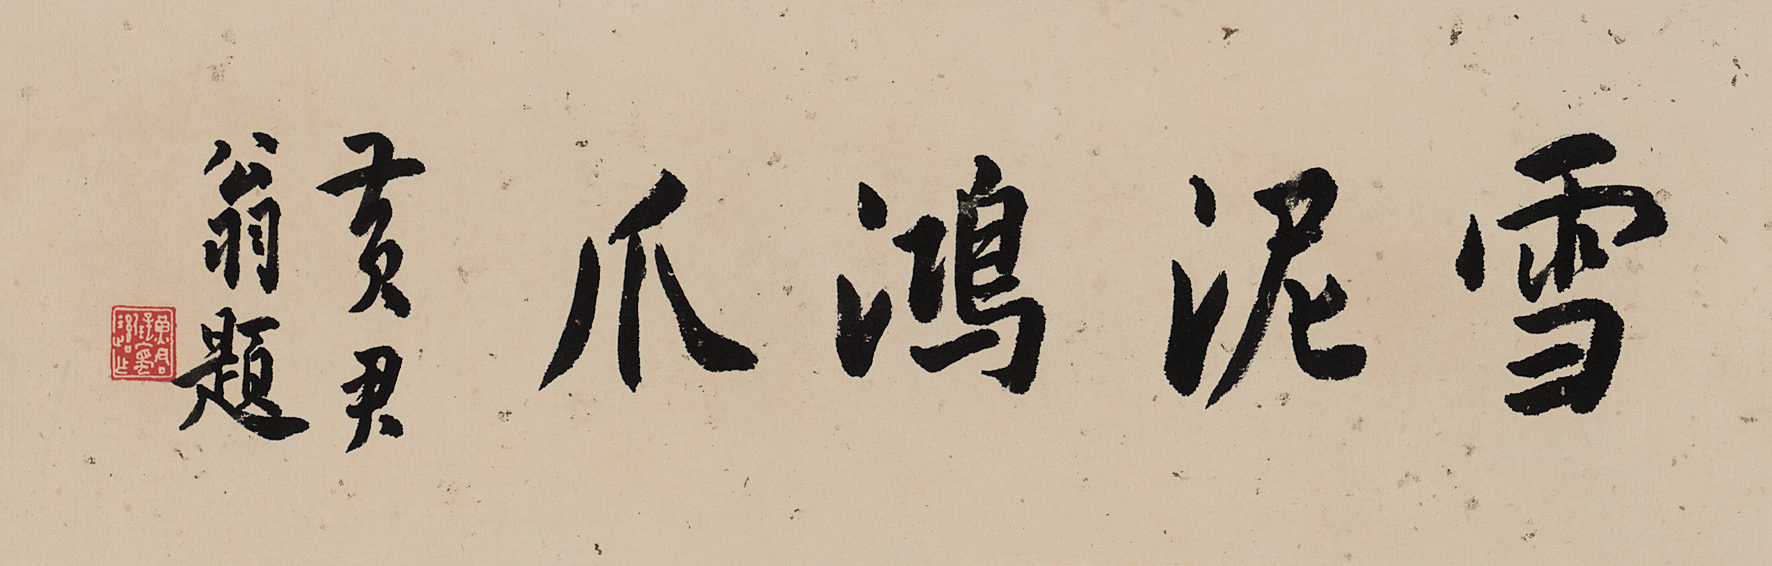 雪泥鴻爪
黄君
翁題